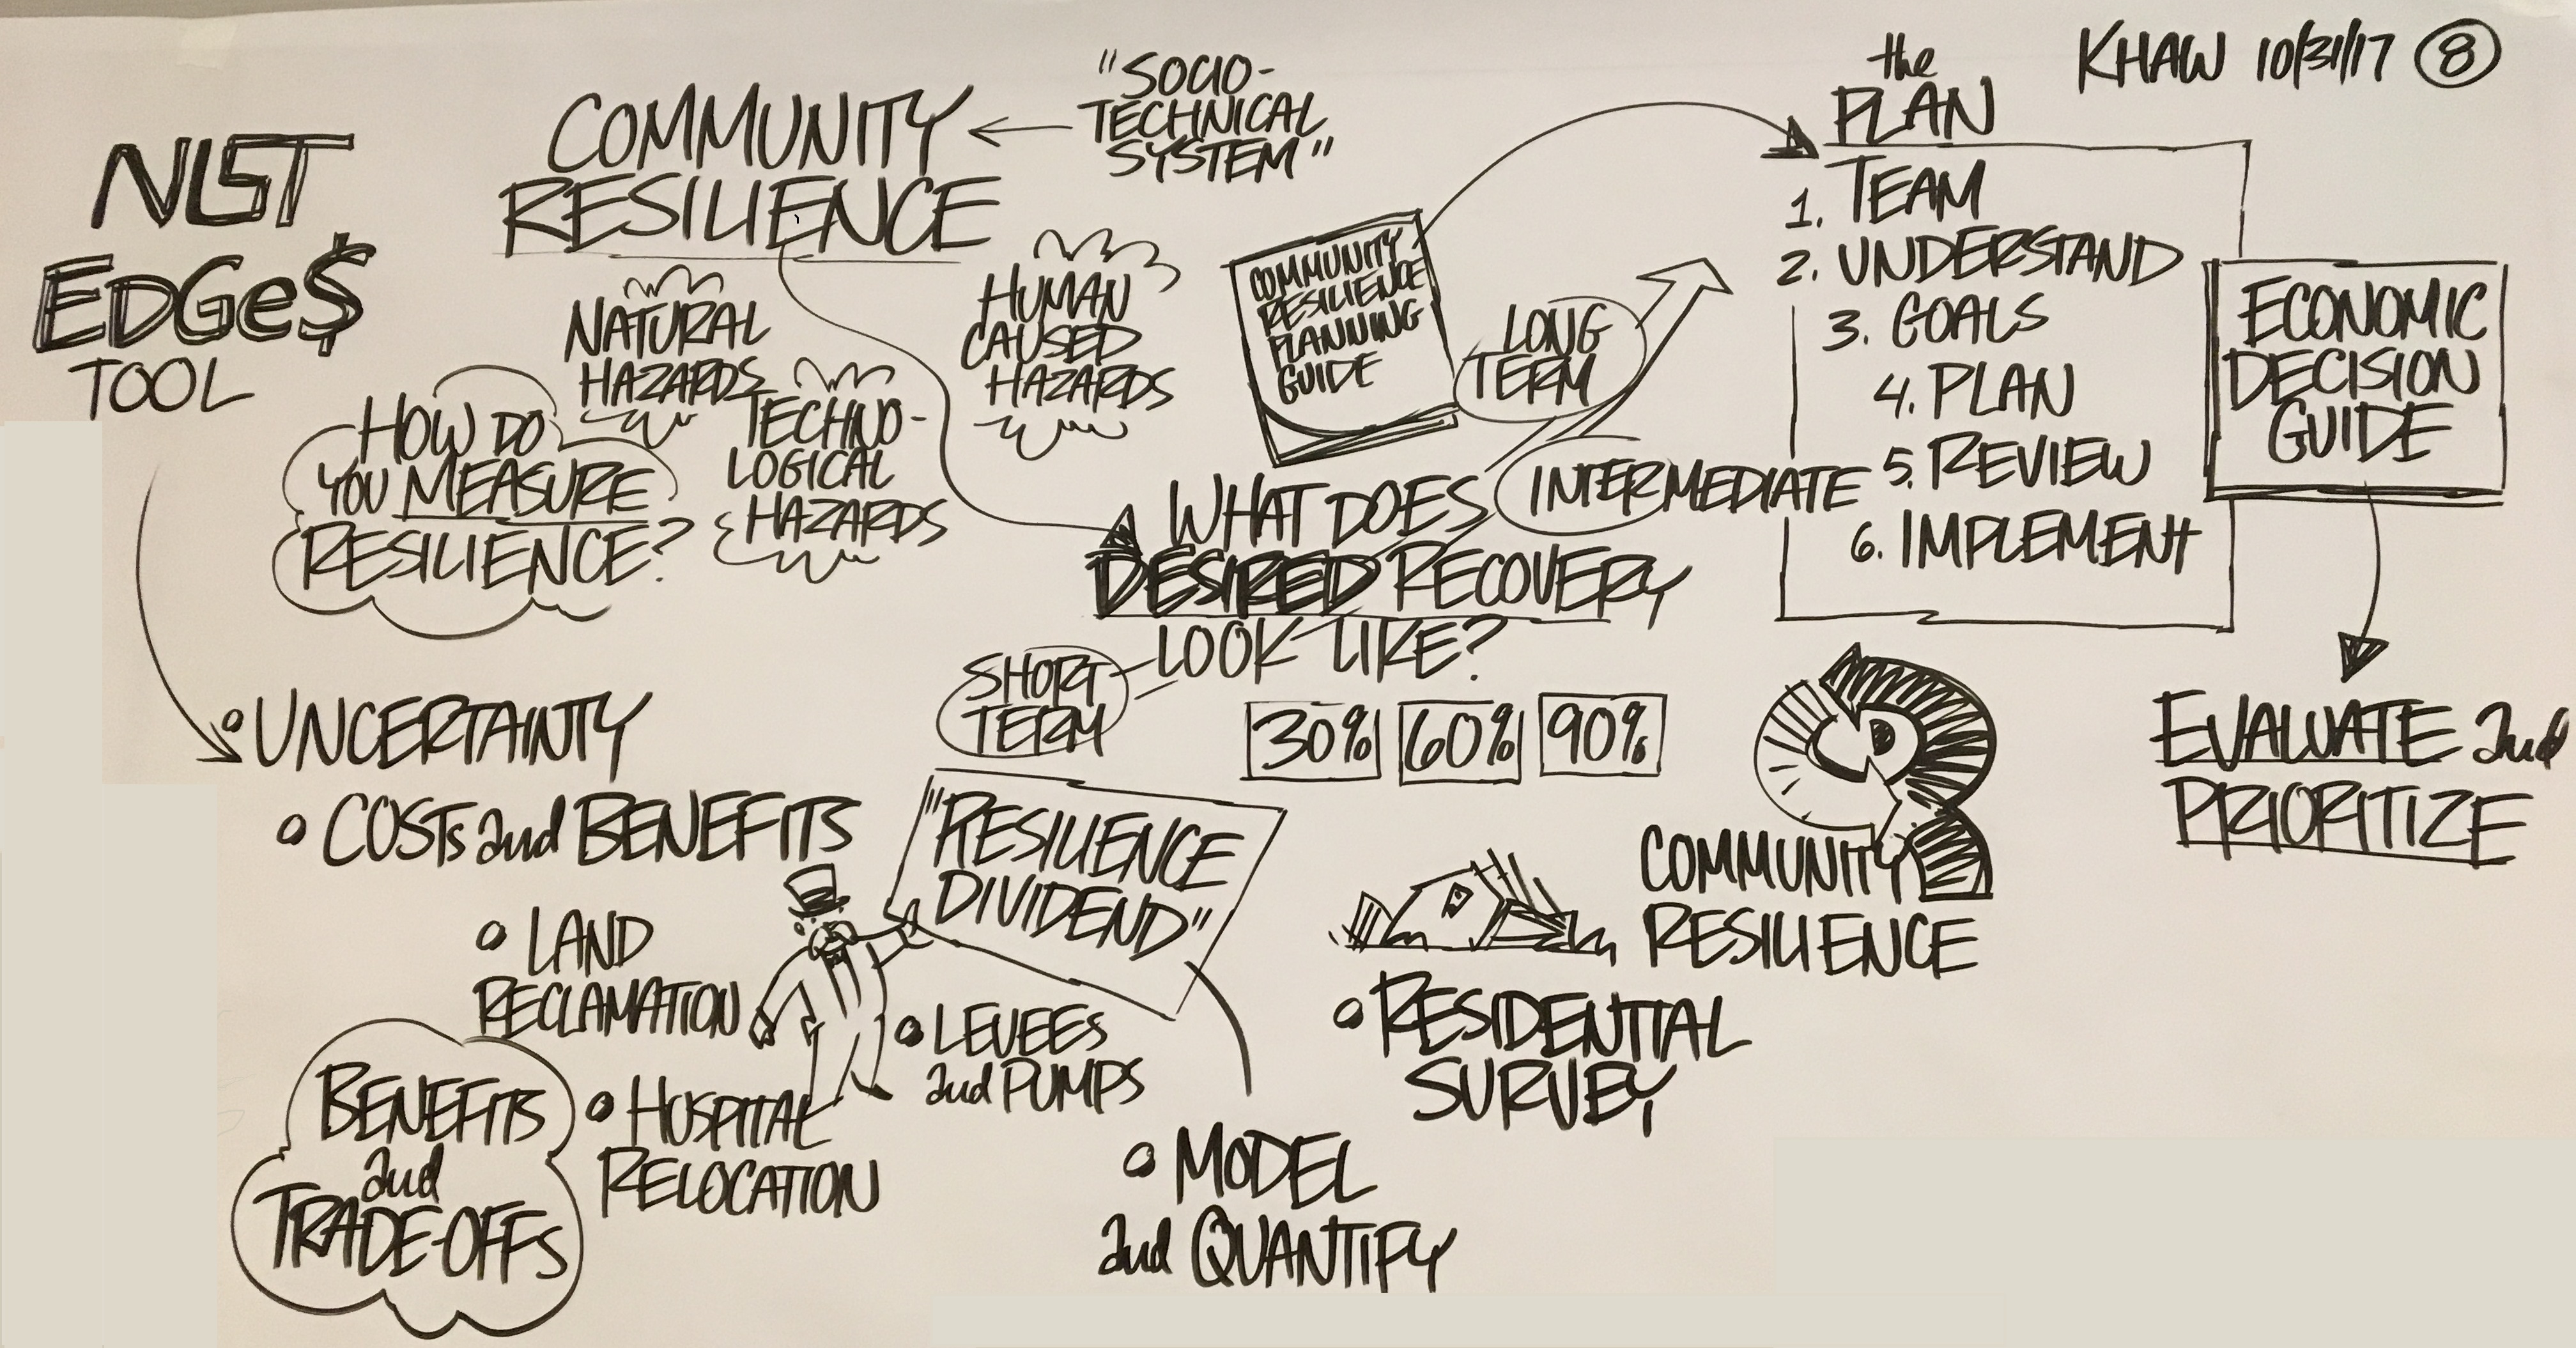 NIST
EDGe$
TOOL
COMMUNITY
RESILIENCE
"SOCIO-
TECHNICAL
SYSTEM"
NATURAL
HAZARDS
TECHNO-
LOGICAL
HAZARDS
HUMAN
CAUSED
HAZARDS
HOW DO
YOU MEASURE
RESILIENCE?
COMMUNITY
RESILIENCE
PLANNING
GUIDE
the
PLAN
1. TEAM
2. UNDERSTAND
3. GOALS
4. PLAN
5. REVIEW
6. IMPLEMENT
KHAW 10/31/17 8
ECONOMIC
DECISION
GUIDE
EVALUATE and
PRIORITIZE
LONG
TERM
INTERMEDIATE
WHAT DOES
DESIRED RECOVERY
LOOK LIKE?
SHORT
TERM
30% 60% 90%
UNCERTAINTY
COSTs and BENEFITS
LAND
RECLAMATION
HOSPITAL
RELOCATION
LEVEES
and PUMPS
BENEFITS
and
TRADE-OFFs
"RESILIENCE
DIVIDEND"
MODEL
and QUANTIFY
COMMUNITY
RESILIENCE
RESIDENTIAL
SURVEY